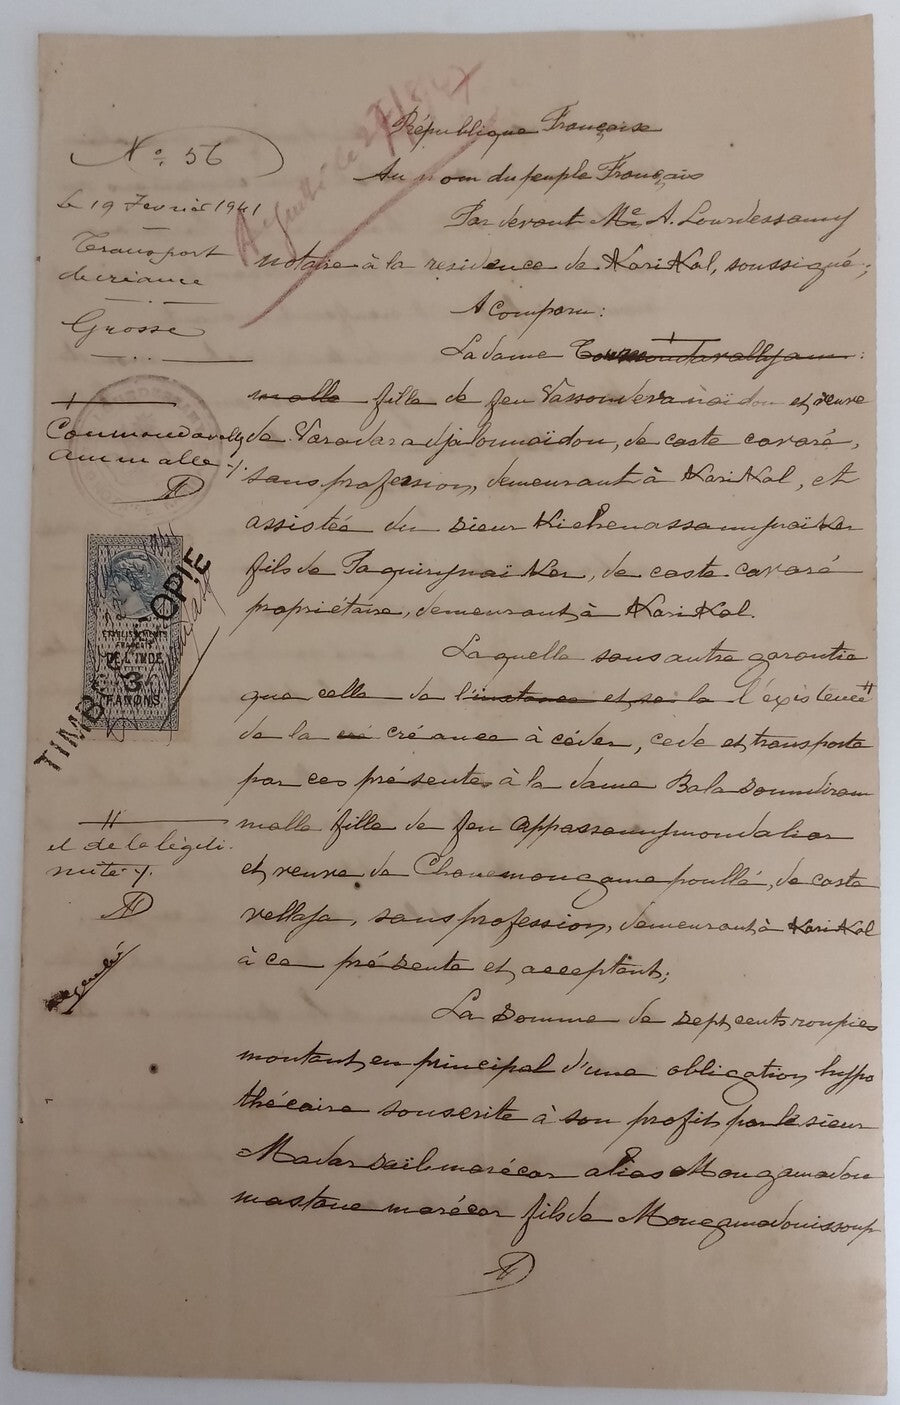 République Française
Au nom du peuple Français
Nº. 56
Le 19 Fevrier 1941
Transport
de créance
Grosse
Par devant Me. A. Lourdessamy
notaire à la residence de Karikal, soussigné;
A comparu:
La dame
malle fille de feu Vassoudevanaïdou et veuve
de Varadaradjalounaïdou, de caste cavaré,
sans profession, demeurant à Karikal, et
assistée du sieur Kichenassamynaïker
fils de Paquirynaïker, de caste cavaré
propriétaire, demeurant à Karikal.
Laquelle sans autre garantie
que celle de l'instance et se la l'existence
de la créance à céder, cède et transporte
par ces présentes à la dame Balasoundiram
malle fille de feu Appassamymodaliar
et veuve de Chanemougame poullé, de caste
vellaja, sans profession, demeurant à Karikal
à ce présente et acceptant;
La somme de sept cents roupies
montant en principal d'une obligation hypo
thécaire souscrite à son profit par le sieur
Madarsaïbmarécar alias Mougamadou
mastane marécar fils de Mougamadouissoup
Coumoudavally
ammalle
ETABLISSEMENTS
FRANÇAIS
DE L'INDE
3
FANONS
TIMBRE COPIE
et de la légiti
mité